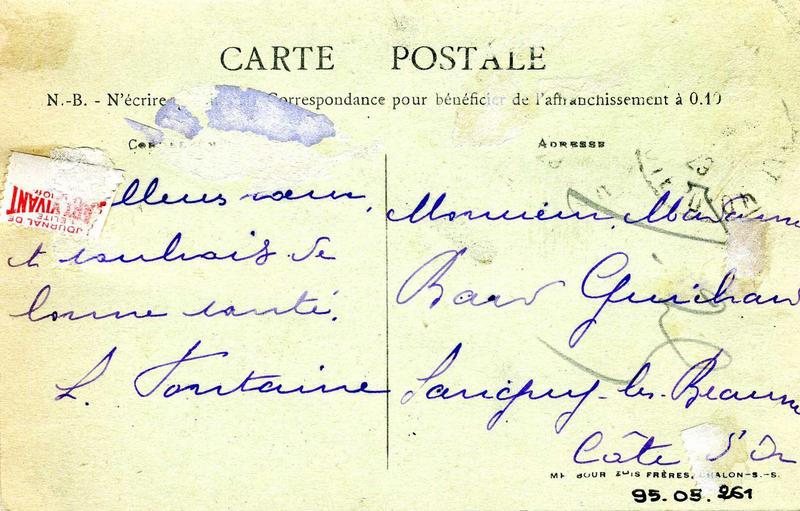 CARTE POSTALE
N.-B. - N'écrire Correspondance pour bénéficier de l'affranchissement à 0.10
ADRESSE
JOURNAL DE
L'ÉLITE
ART VIVANT
lleurs vœux,
et souhais de
bonne santé.
L. Fontaine
Monsieur, Madame
Guichard
Savigny-les-Beaune
Côte d'Or
FRÈRES, CHALON-S.-S.
95.05.261